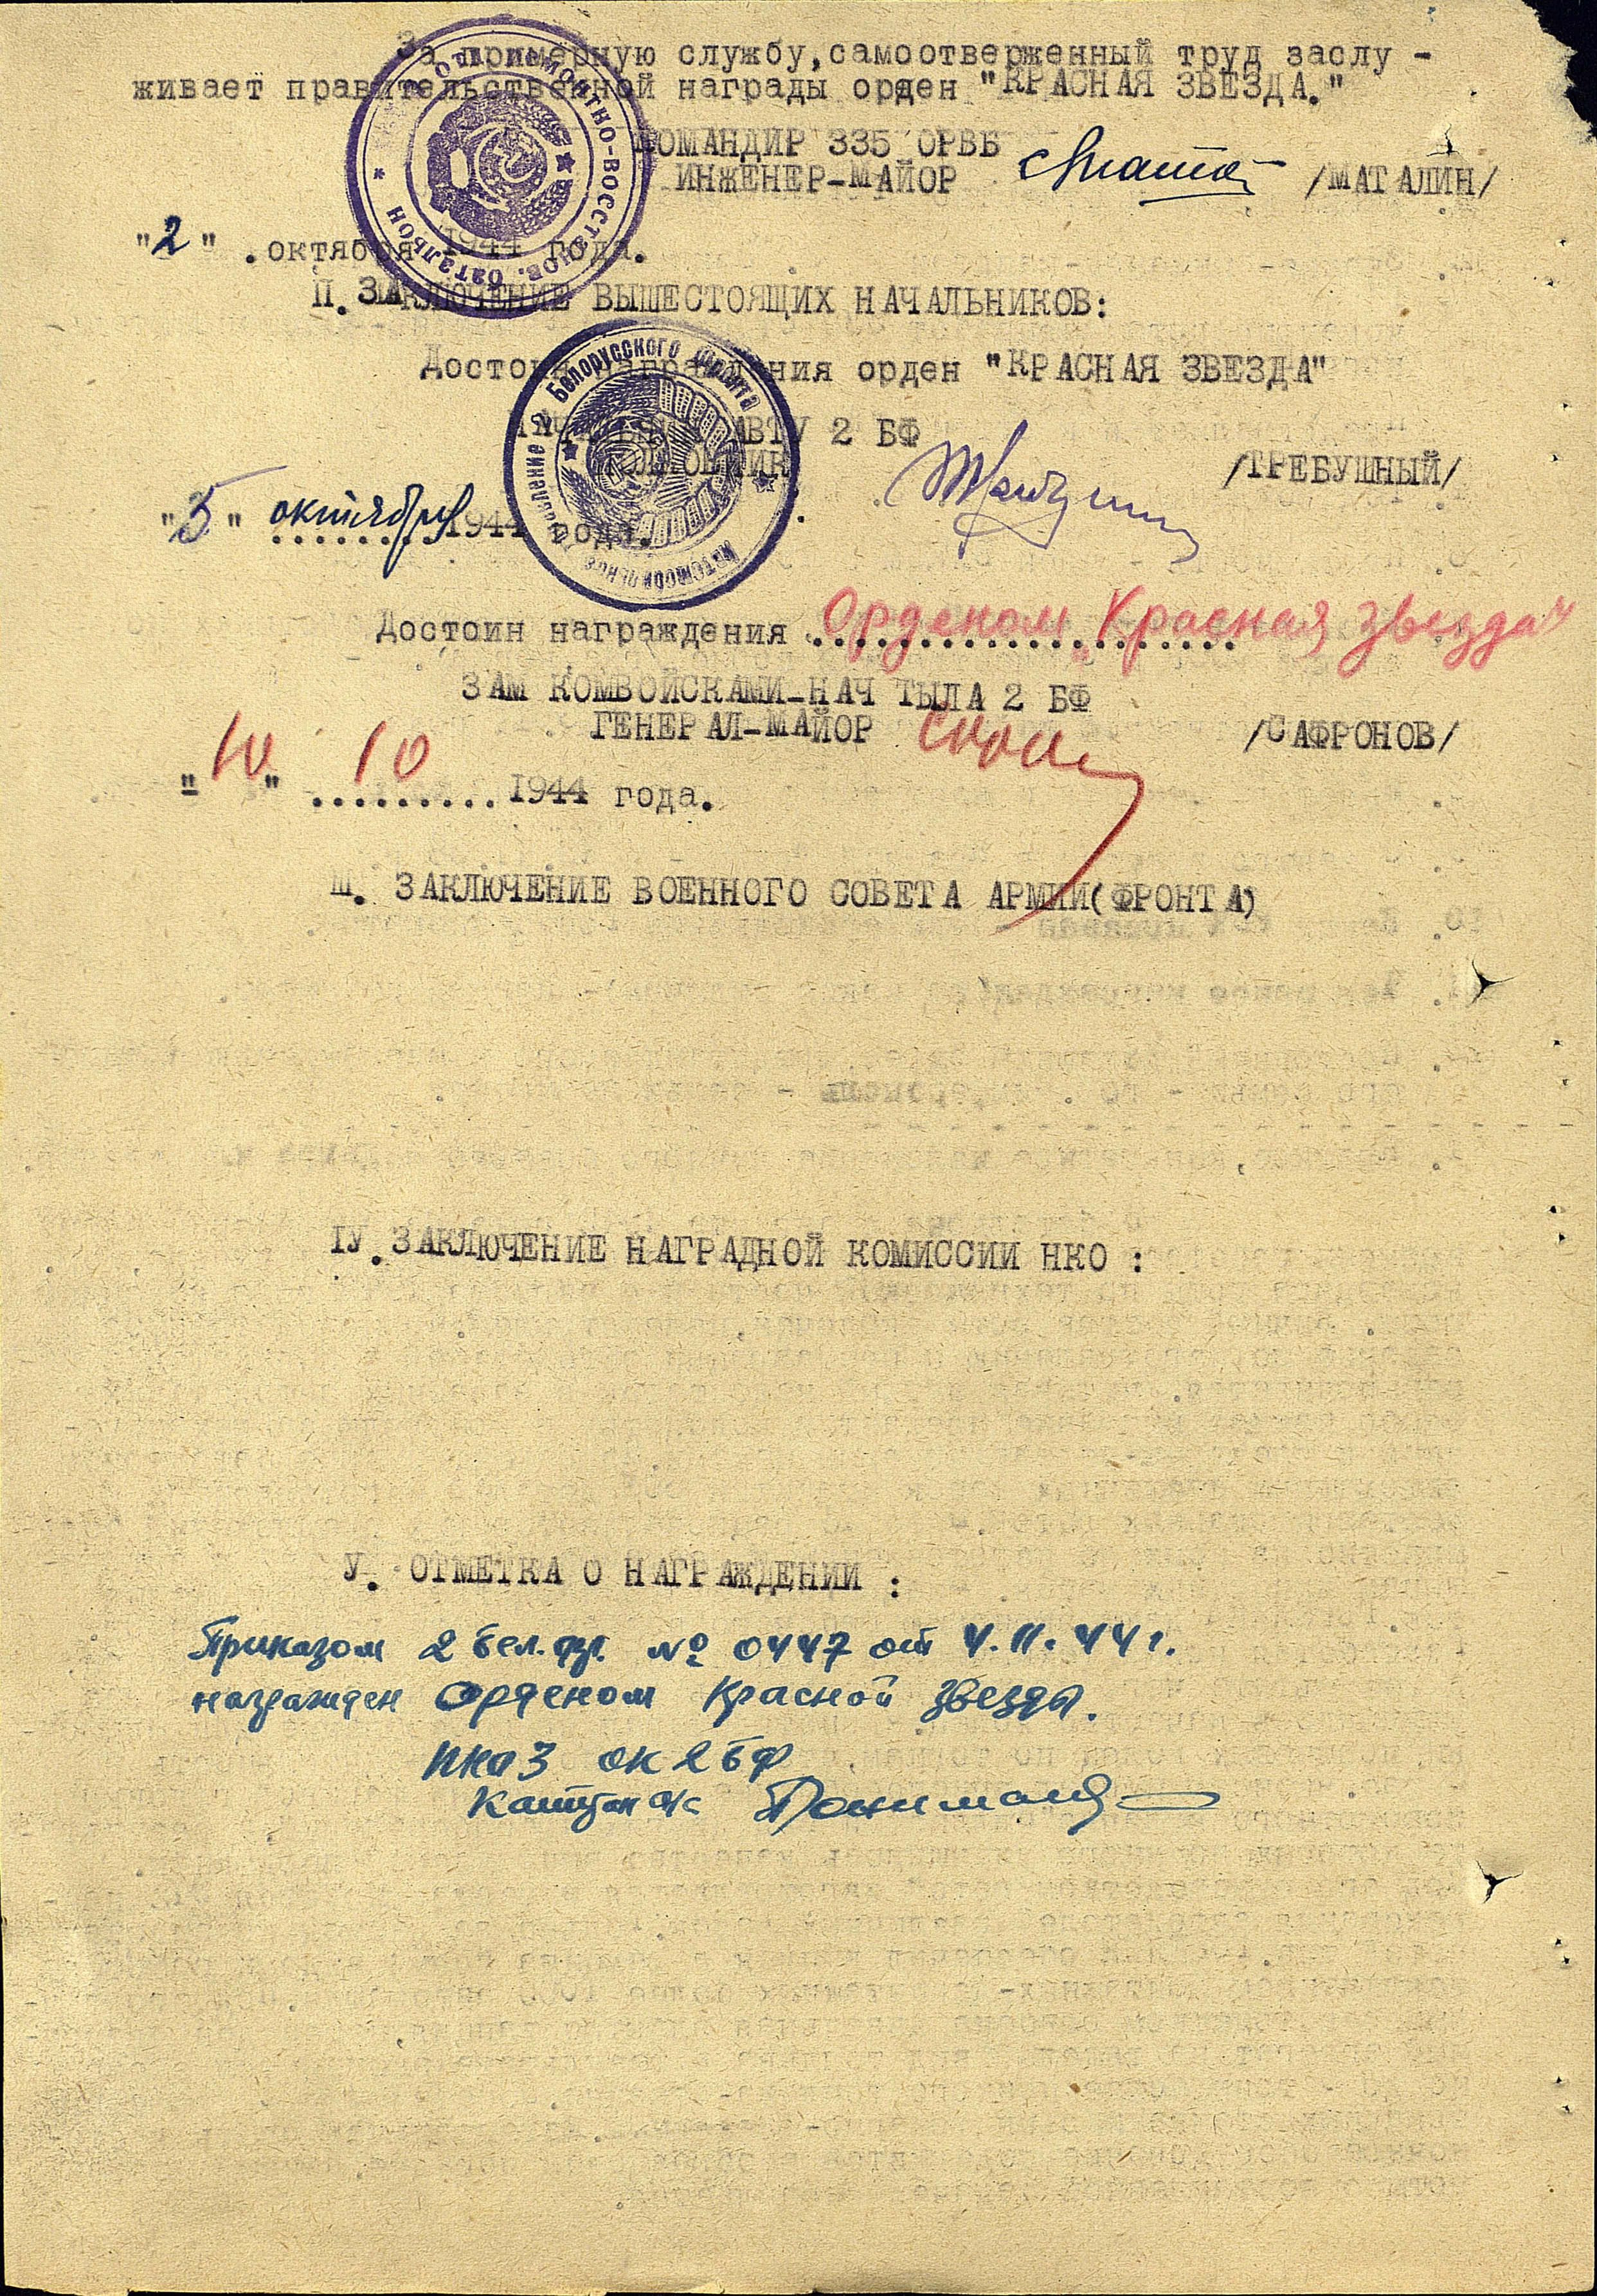 За примерную службу, самоотверженный труд заслу -
живает правительственной награды орден "КРАСНАЯ ЗВЕЗДА."
КОМАНДИР 335 ОРВБ
ИНЖЕНЕР-МАЙОР /МАТАЛИН/
"2" . октября 1944 года.
П. ЗАКЛЮЧЕНИЕ ВЫШЕСТОЯЩИХ НАЧАЛЬНИКОВ:
Достоин награждения орден "КРАСНАЯ ЗВЕЗДА"
НАЧАЛЬНИК АВТУ 2 БФ
ПОЛКОВНИК /ТРЕБУШНЫЙ/
"5" октября 1944 года.
Достоин награждения Орденом „Красная звезда"
ЗАМ КОМВОЙСКАМИ-НАЧ ТЫЛА 2 БФ
ГЕНЕРАЛ-МАЙОР /САФРОНОВ/
"10" 10 1944 года.
Ш. ЗАКЛЮЧЕНИЕ ВОЕННОГО СОВЕТА АРМИИ(ФРОНТА)
ІУ. ЗАКЛЮЧЕНИЕ НАГРАДНОЙ КОМИССИИ НКО :
У. ОТМЕТКА О НАГРАЖДЕНИИ :
Приказом 2 Бел. фр. № 0447 от 4.11.44 г.
награжден Орденом Красной Звезды.
ОК 2 БФ
Капитан а/с